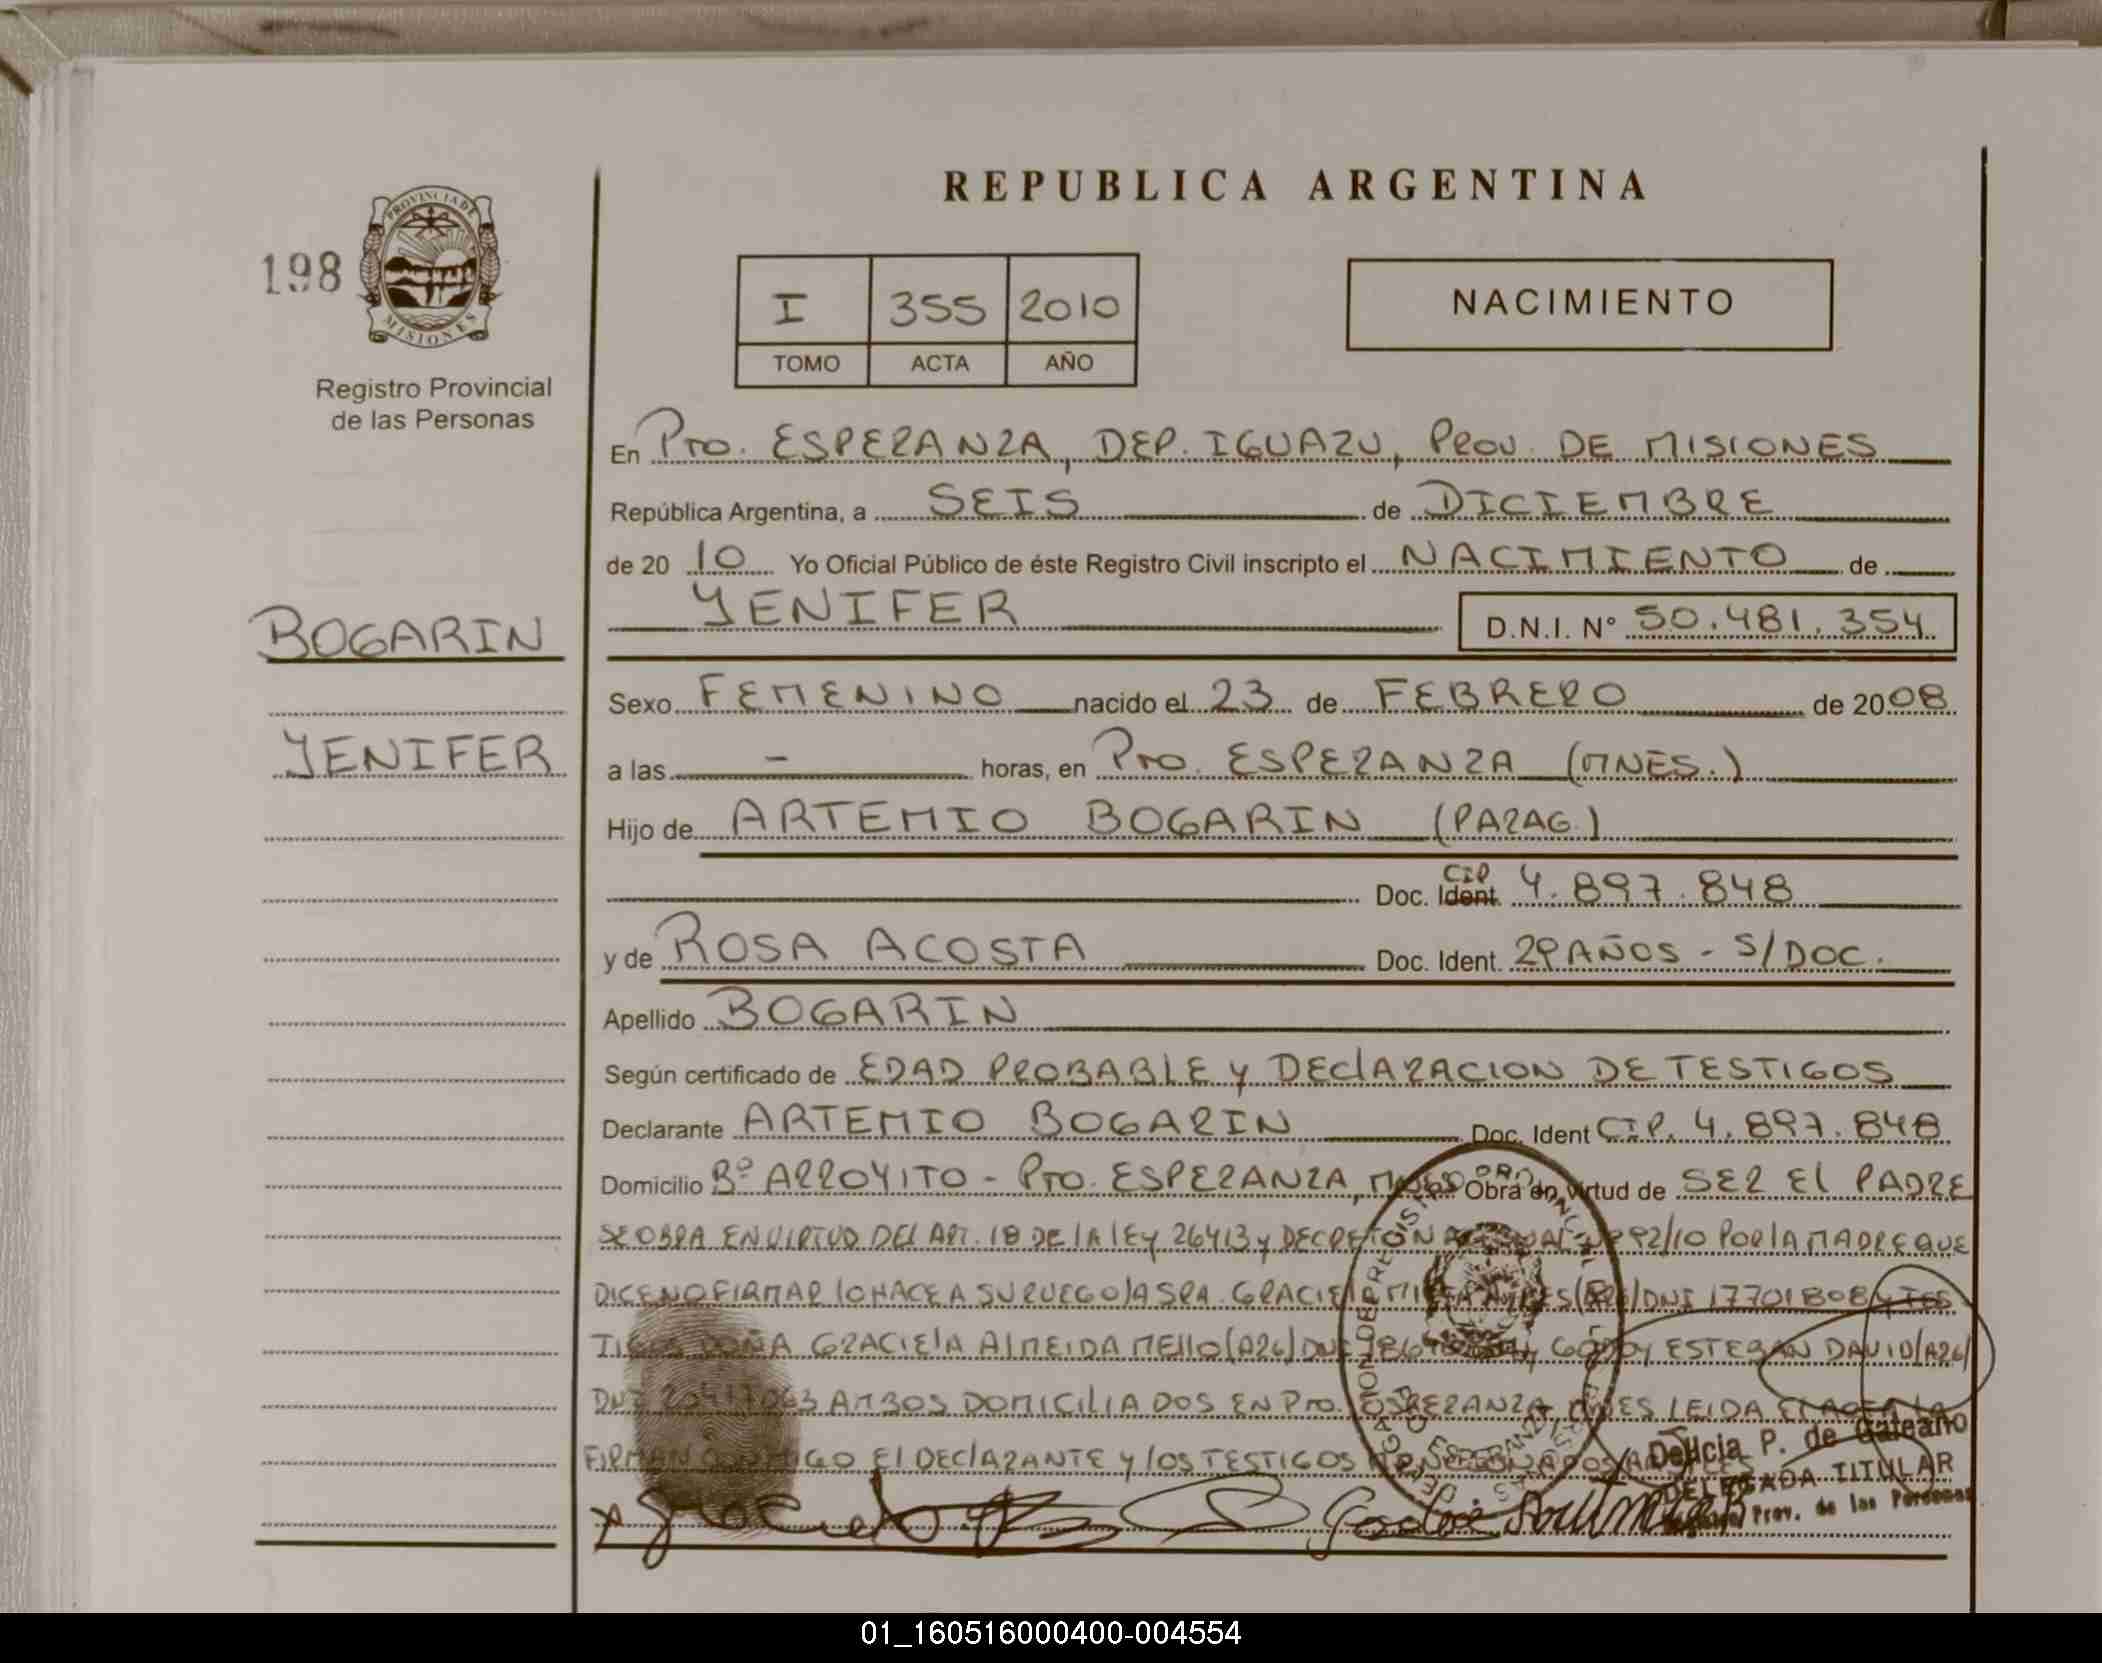 REPUBLICA ARGENTINA
198
PROVINCIA DE
MISIONES
Registro Provincial
de las Personas
I 355 2010
TOMO ACTA AÑO
NACIMIENTO
En Pto. ESPERANZA, DEP. IGUAZU, Prov. DE MISIONES
República Argentina, a SEIS de DICIEMBRE
de 20 10 Yo Oficial Público de éste Registro Civil inscripto el NACIMIENTO de
YENIFER D.N.I. N° 50.481.354
BOGARIN
Sexo FEMENINO nacido el 23 de FEBRERO de 2008
YENIFER
a las - horas, en Pto. ESPERANZA (MNES.)
Hijo de ARTEMIO BOGARIN (PARAG.)
Doc. Ident. CIP 4.897.848
y de ROSA ACOSTA Doc. Ident. 29 AÑOS - S/DOC.
Apellido BOGARIN
Según certificado de EDAD PROBABLE y DEClARACION DE TESTIGOS
Declarante ARTEMIO BOGARIN Doc. Ident CIP. 4.897.848
Domicilio Bº ARROYITO - Pto. ESPERANZA, Obra en virtud de SER El PADRE
SE OBRA EN VIRTUD DEl ART. 18 DE lA lEy 26413 y DECRETO NACIONAL 92/10 POR lA MADRE QUE
DICE NO FIRMAR lO HACE A SU RUEGO lA SRA. GRACIElA DNI 17701808 y TES
TIGOS DOÑA GRACIElA AlMEIDA MEllO (A26) DNI GODOY ESTEBAN DAVID (A26)
DNI AMBOS DOMICIlIADOS EN Pto. ESPERANZA, MNES LEIDA El ACTA lA
FIRMAN CONMIGO El DEClARANTE y lOS TESTIGOS MENCIONADOS
Delicia P. de Galeano
DELEGADA TITULAR
Prov. de las Personas
01_160516000400-004554